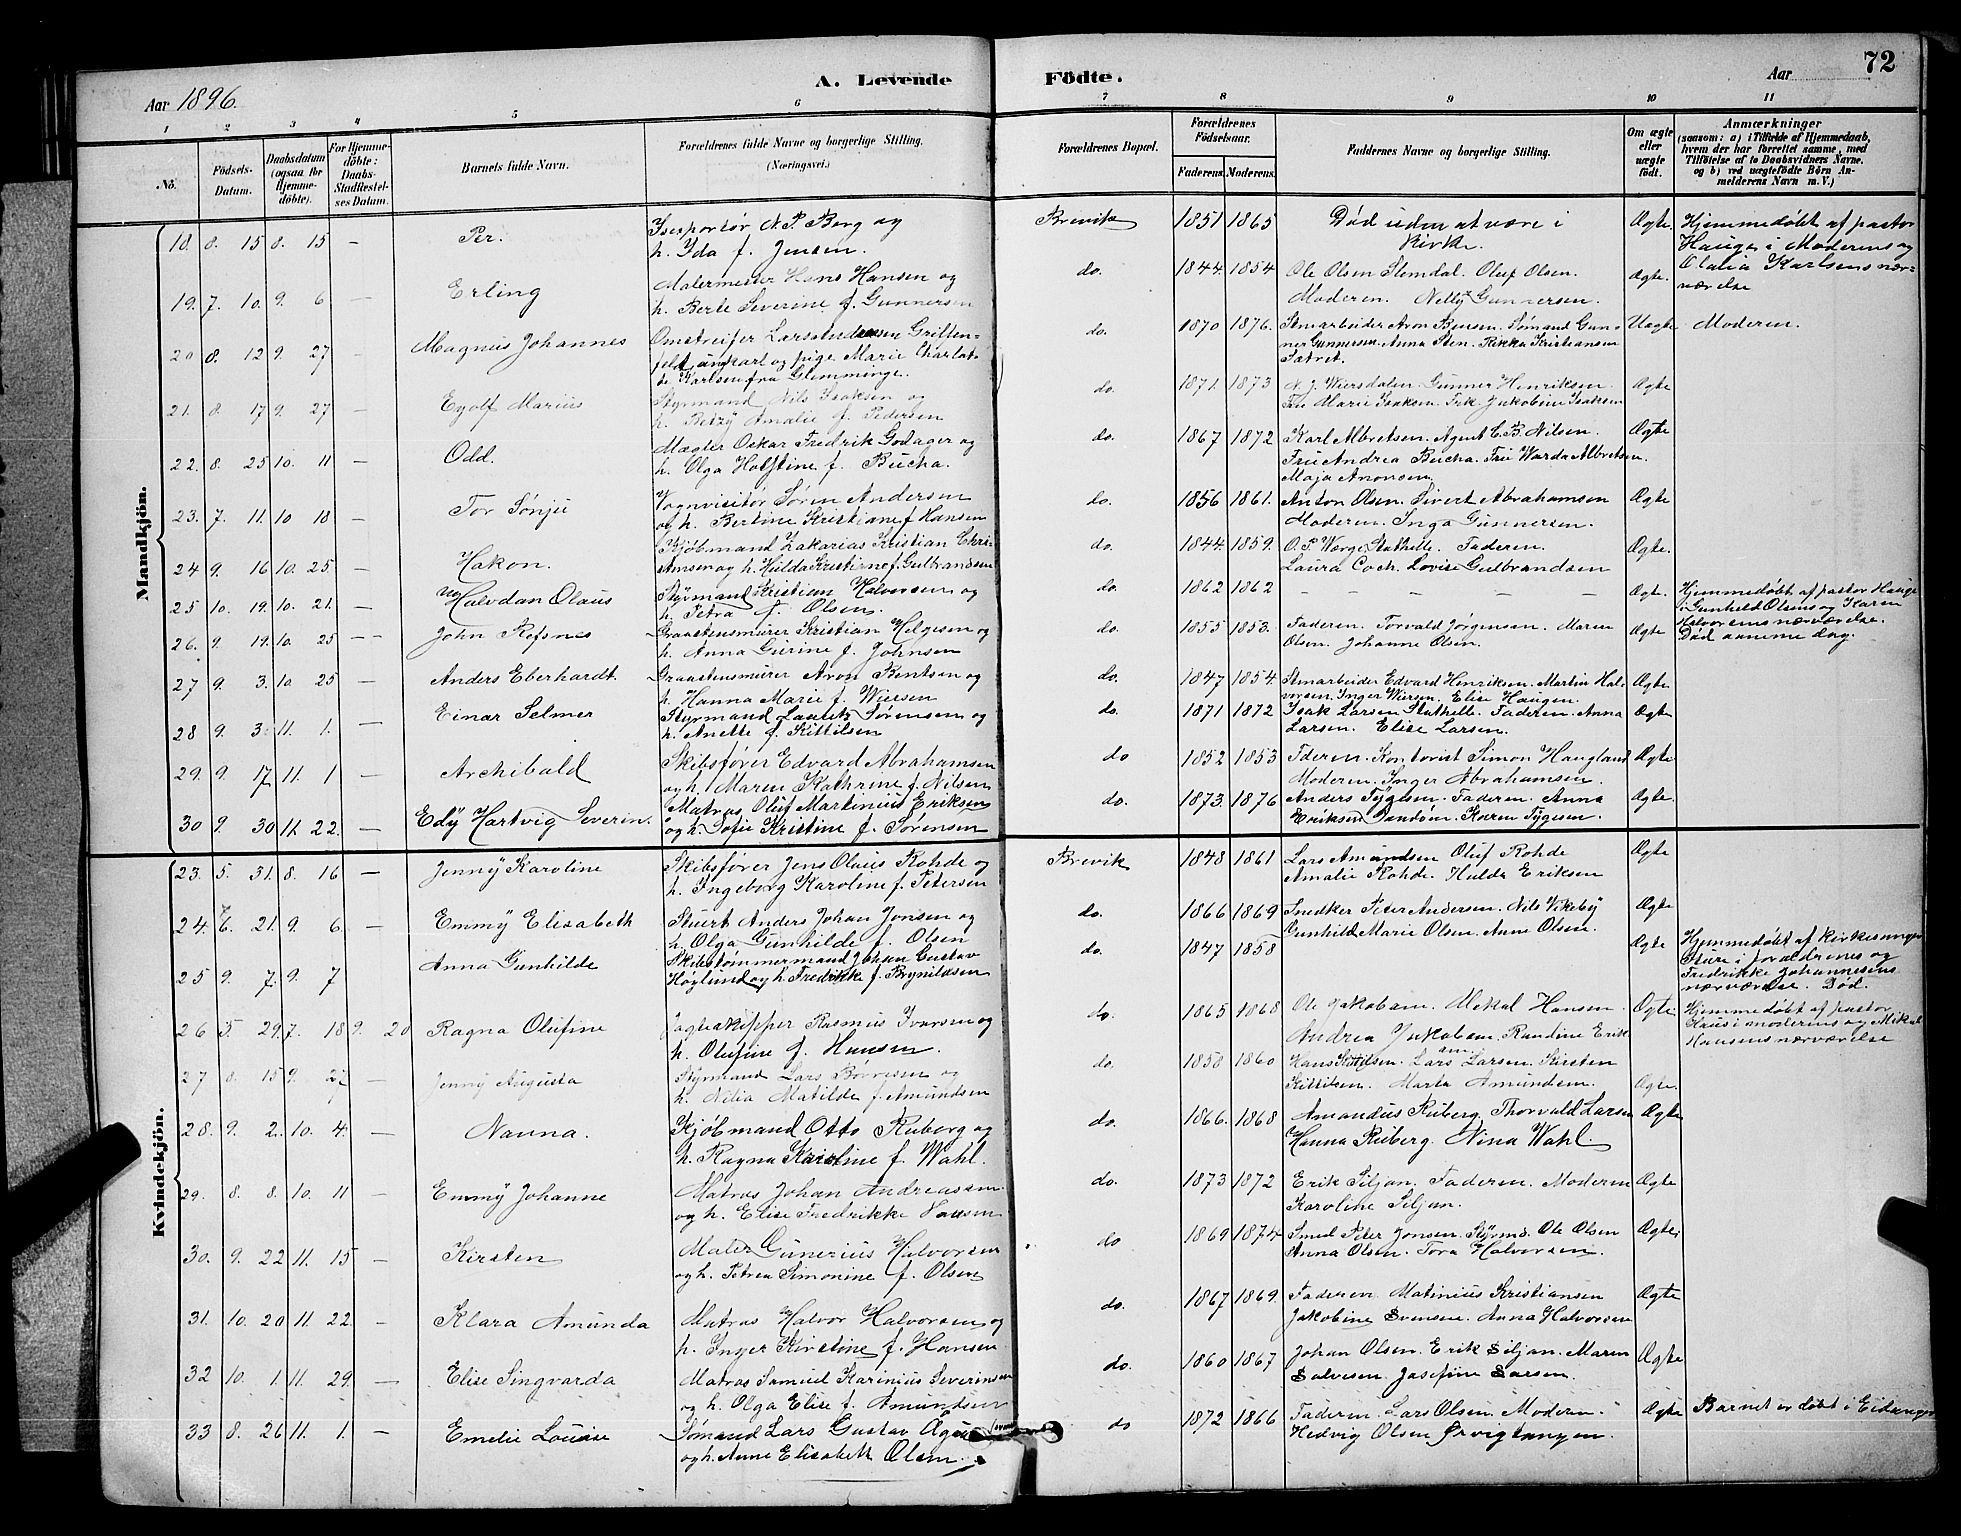 72
Aar 1896.
A. Levende Födte.
Aar
1 2 3 4 5 6 7 8 9 10 11
No.
Födsels-Datum.
Daabsdatum (ogsaa for Hjemmedöbte).
For Hjemmedöbte: Daabs-Stadfestelses Datum.
Barnets fulde Navn.
Forældrenes fulde Navne og borgerlige Stilling. (Næringsvei.)
Forældrenes Bopæl.
Forældrenes Födselsaar.
Faderens. Moderens.
Faddernes Navne og borgerlige Stilling.
Om ægte eller uægte födt.
Anmærkninger
(saasom: a) i Tilfælde af Hjemmedaab, hvem der har forrettet samme, med Tilföielse af to Daabsvidners Navne. og b) ved uægtefödte Börn Anmelderens Navn m. V.)
Mandkjön.
18. 8. 15 8. 15 — Per. N. P. Berg og
h. Ida f. Jensen. Brevik 1851 1865 Død uden at være i
Kirke. Ægte. Hjemmedøbt af pastor
Hauge i Moderens og
Olalia Karlsens nær-
værelse
19. 7. 10. 9. 6 — Erling Malermester Hans Hansen og
h. Berte Severine f. Gunnersen do. 1844. 1854 Ole Olsen Stemdal. Oluf Olsen.
Moderen. Nelly Gunnersen. Ægte.
20 8. 12 9. 27 — Magnus Johannes Omstreifer Grilten-
feldt ungkarl og pige Marie Charlot-
te Karlsen fra Glemminge. do. 1870 1876. Stenarbeider Aron Bensen. Sømand Gun-
ner Gunnersen. Anna Sten. Rikka Kristiansen
Uægte Moderen.
21. 8. 17 9. 27 — Eyolf Marius Styrmand Nils Isaksen og
h. Betzy Amalie f. Pedersen do. 1871. 1873 N. J. Wiersdalen. Gunner Henriksen.
Fru Marie Isaksen. Frk. Jakobine Isaksen Ægte
22. 8. 25 10. 11 — Odd. Mægler Oskar Fredrik Godager og
h. Olga Holstine f. Bucha. do. 1867 1872 Karl Albretsen. Agent C. B. Nilsen.
Fru Andrea Bucha. Fru Warda Albretsen.
Maja Aronsen. Ægte
23. 7. 11. 10 18 — Tor Sønju Vognvisitør Søren Andersen
og h. Bertine Kristiane f. Hansen do. 1856 1861. Anton Olsen. Sivert Abrahamsen
Moderen. Inga Gunnersen. Ægte
24 9. 16 10. 25 — Hakon. Kjøbmand Zakarias Kristian Chri-
stensen og h. Hulda Kristine f. Gulbrandsen do. 1844. 1859. O. P. Værge Stathelle. Faderen.
Laura Coch. Lovise Gulbrandsen Ægte.
25 10. 19. 10. 21. — Halvdan Olaus Styrmand Kristian Halvorsen og
h. Petra f. Olsen. do. 1862 1862 — — — — — Ægte. Hjemmedøbt af pastor Hauge
i Gunhild Olsens og Karen
Halvorsens nærværelse.
Død samme dag.
26. 9. 19. 10. 25 — John Refsnes Graastensmurer Kristian Helgesen og
h. Anna Gurine f. Johnsen do. 1855 1853. Faderen. Torvald Jørgensen. Maren
Olsen. Johanne Olsen. Ægte
27 9. 3. 10. 25 — Anders Eberhardt. Graastensmurer Aron Bentsen og
h. Hanna Marie f. Wiersen do. 1847 1854. Stenarbeider Edvard Henriksen. Martin Hal-
vorsen. Inger Wiersen. Elise Haugen. Ægte
28 9. 3. 11. 1. — Einar Selmer Styrmand Laurits Sørensen og
h. Anette f. Kittilsen do. 1871 1872 Isak Larsen Stathelle. Faderen. Anna
Larsen. Elise Larsen. Ægte
29. 9. 17 11. 1 — Archibald Skibsfører Edvard Abrahamsen
og h. Maren Kathrine f. Nilsen do 1852 1853 Faderen. Kontorist Simon Haugland
Moderen. Inger Abrahamsen. Ægte
30 9. 30 11. 22. — Edy Hartvig Severin. Matros Oluf Martinius Eriksen
og h. Sofie Kristine f. Sørensen do. 1873. 1876 Anders Tygesen. Faderen. Anna
Eriksen Sandøen. Karen Tygesen. Ægte.
Kvindekjön.
23. 5. 31. 8. 16 — Jenny Karoline Skibsfører Jens Olaus Rohde og
h. Ingeborg Karoline f. Petersen Brevik 1848 1861 Lars Amundsen Oluf Rohde
Amalie Rohde. Hulda Eriksen Ægte
24. 6. 21. 9. 6 — Emmy Elisabeth Stuert Anders Johan Jonsen og
h. Olga Gunhilde f. Olsen do. 1866 1869 Snedker Peter Andersen. Nils Vikeby
Gunhild Marie Olsen. Anne Olsen. Ægte
25 9. 7. 9. 7 Anna Gunhilde Skibstømmermand Johan Gustav
Høglund og h. Fredrikke f. Brynildsen do. 1847 1858 Ægte Hjemmedøbt af kirkesanger
Sture i forældrenes og
Fredrikke Johannesens
nærværelse. Død.
26 5. 29. 7. 18 9. 20 Ragna Olufine Jagteskipper Rasmus Ivarsen og
h. Olufine f. Hansen. do. 1865 1868 Ole Jakobsen. Mekal Hansen
Andrea Jakobsen. Randine Erik- Ægte. Hjemmedøbt af pastor
Haus i moderens og Mikal
Hansens nærværelse
27 8. 15 9. 27 — Jenny Augusta Styrmand Lars Børresen og
h. Nilia Matilde f. Amundsen do. 1858 1860 Hans Kittilsen. Lars Larsen. Kirsten
Kittilsen. Marta Amundsen. Ægte.
28. 9. 2. 10. 4. — Nanna. Kjøbmand Otto Ruberg og
h. Ragna Karoline f. Wahl. do. 1866. 1868 Amandus Ruberg. Thorvald Larsen
Hanna Ruberg. Nina Wahl. Ægte
29. 8. 8. 10. 11 — Emmy Johanne Matros Johan Andreassen
og h. Elise Fredrikke Hansen do. 1873 1872 Erik Siljan. Faderen. Moderen
Karoline Siljan. Ægte
30. 9. 22 11. 15 — Kirsten Maler Gunerius Halvorsen
og h. Petrea Simonine f. Olsen do 1869 1874 Smed Peter Jonsen. Styrmd. Ole Olsen
Anna Olsen. Tora Halvorsen. Ægte.
31. 10. 20 11. 22. — Klara Amunda Matros Halvor Halvorsen og
h. Inger Kirstine f. Hansen do. 1867 1869. Faderen. Matinius Kristiansen
Jakobine Svensen. Anna Halvorsen Ægte
32 10. 1. 11. 29. — Elise Singvarda Matros Samuel Karinius Severinsen
og h. Olga Elise f. Amundsen do. 1860 1867 Johan Olsen. Erik Siljan. Maren
Salvesen. Josefine Larsen. Ægte
33 8. 26 11. 1. — Emelie Louise Sømand Lars Gustav
og h. Anne Elisabeth Olsen. do 1872 1866 Faderen. Lars Olsen. Moderen.
Hedvig Olsen Ørvigtangen. Ægte Barnet er døbt i Eidanger